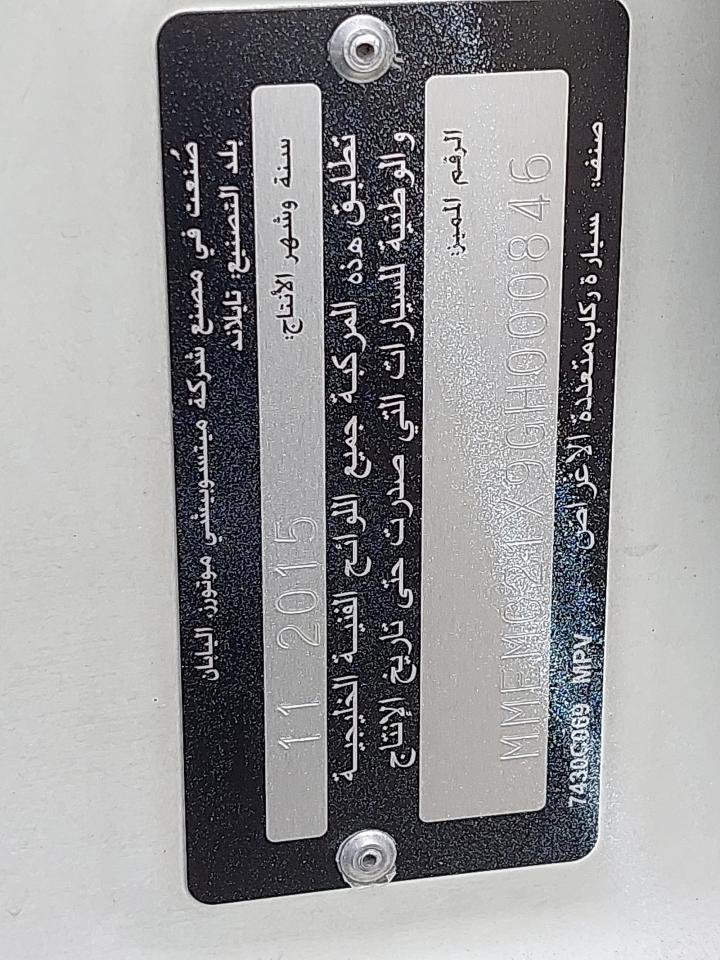 صُنعت في مصنع شركة ميتسوبيشي موتورز, اليابان
بلد التصنيع: تايلاند
سنة وشهر الأنتاج: 11 2015
تطابق هذه المركبة جميع اللوائح الفنية الخليجية
والوطنية للسيارات التي صدرت حتى تاريخ الإنتاج
الرقم المميز:
صنف: سيارة ركاب متعددة الاغراض MPV 7430C069